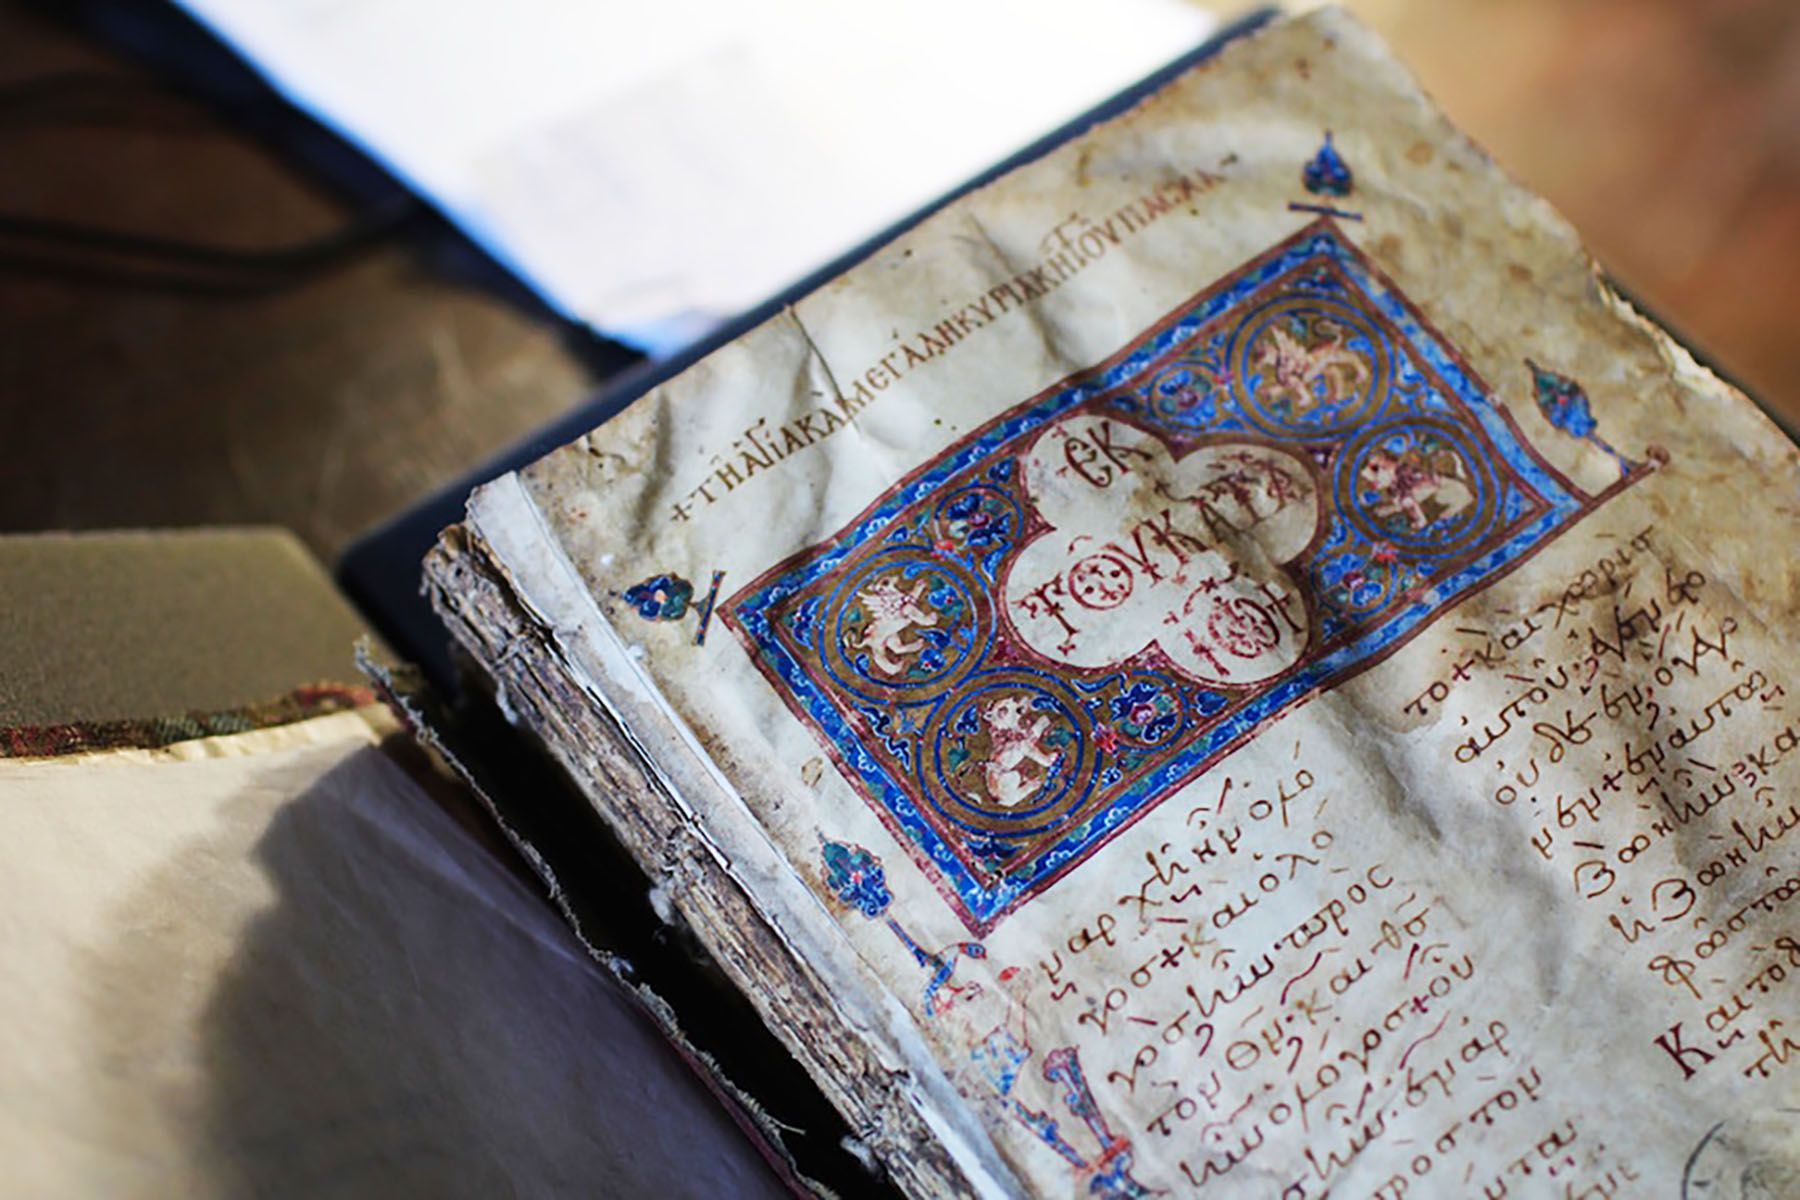 + ΤΗ ΑΓΙΑ ΚΑΙ ΜΕΓΑΛΗ ΚΥΡΙΑΚΗ ΤΟΥ ΠΑΣΧΑ
ΕΚ
ΤΟΥ ΚΑΤΑ
ΙΩ +
ν ἀρχῆ ἦν ὁ λό
γος + καὶ ὁ λό
γος ἦν πρὸς
τὸν θν· καὶ θς
ἦν ὁ λόγος + οὗ
ἦν ἐν ἀρ
πρὸς τὸν
το + καὶ χωρὶς
αὐτοῦ ἐγένετο
οὐδὲ ἕν, ὃ γέγο
νεν + ἐν αὐτῶ
ζωὴ ἦν· καὶ
ἡ ζωὴ ἦν
φῶς τῶν
Καὶ τὸ
τῆ